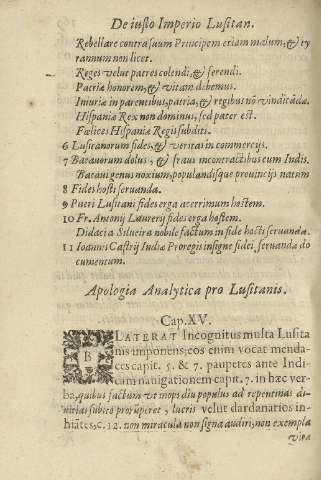 De iusto Imperio Lusitan.
Rebellare contra suum Principem etiam malum, & ty
rannum non licet.
Reges velut patres colendi, & ferendi.
Patriæ honorem, & vitam debemus.
Iniuriæ in parentibus, patria, & regibus nõ vindicãdæ.
Hispaniæ Rex non dominus, sed pater est.
Fœlices Hispaniæ Regis subditi.
6 Lusitanorum fides, & veritas in commercijs.
7 Batauorum dolus, & fraus in contractibus cum Indis.
Bataui genus noxium, populandisque prouincijs natum
8 Fides hosti seruanda.
9 Pueri Lusitani fides erga acerrimum hostem.
10 Fr. Antonij Laurerij fides erga hostem.
Didacia Silueira nobile factum in fide hosti seruanda.
11 Ioannis Castrij Indiæ Proregis insigne fidei seruanda do
cumentum.
Apologia Analytica pro Lusitanis.
Cap. XV.
BLATERAT Incognitus multa Lusita
nis imponens; eos enim vocat menda-
ces capit. 5. & 7. pauperes ante Indi-
cam nauigationem capit. 7. in hæc ver-
ba, quibus factum vt mops diu populus ad repentinas di-
uitias subito prorũperet, lucris velut dardanarios in-
hiãtes, c. 12. non miracula non signa audiri, non exempla
vita